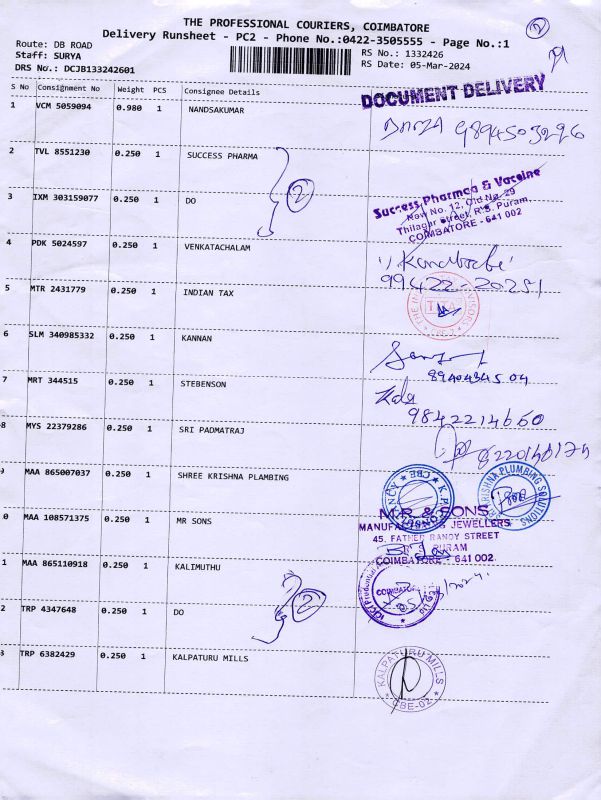 THE PROFESSIONAL COURIERS, COIMBATORE
Delivery Runsheet - PC2 - Phone No.:0422-3505555 - Page No.:1
Route: DB ROAD
Staff: SURYA
DRS No.: DCJB133242601
RS No.: 1332426
RS Date: 05-Mar-2024
2
S No Consignment No Weight PCS Consignee Details
DOCUMENT DELIVERY
1 VCM 5059094 0.980 1 NANDSAKUMAR
9894503296
2 TVL 8551230 0.250 1 SUCCESS PHARMA
2
3 IXM 303159077 0.250 1 DO
Success Pharmca & Vaccine
New No. 12, Old No. 29
Thilagar Street, R.S. Puram,
COIMBATORE - 641 002
4 PDK 5024597 0.250 1 VENKATACHALAM
99422-20251
5 MTR 2431779 0.250 1 INDIAN TAX
6 SLM 340985332 0.250 1 KANNAN
7 MRT 344515 0.250 1 STEBENSON
9842214660
8 MYS 22379286 0.250 1 SRI PADMATRAJ
MAA 865007037 0.250 1 SHREE KRISHNA PLAMBING
KRISHNA PLUMBING SOLUTIONS
0 MAA 108571375 0.250 1 MR SONS
M.R. & SONS
MANUFACTURING JEWELLERS
45, FATHER RANDY STREET
PURAM
COIMBATORE - 641 002.
1 MAA 865110918 0.250 1 KALIMUTHU
2
2 TRP 4347648 0.250 1 DO
3 TRP 6382429 0.250 1 KALPATURU MILLS
KALPATURU MILLS
CBE-02